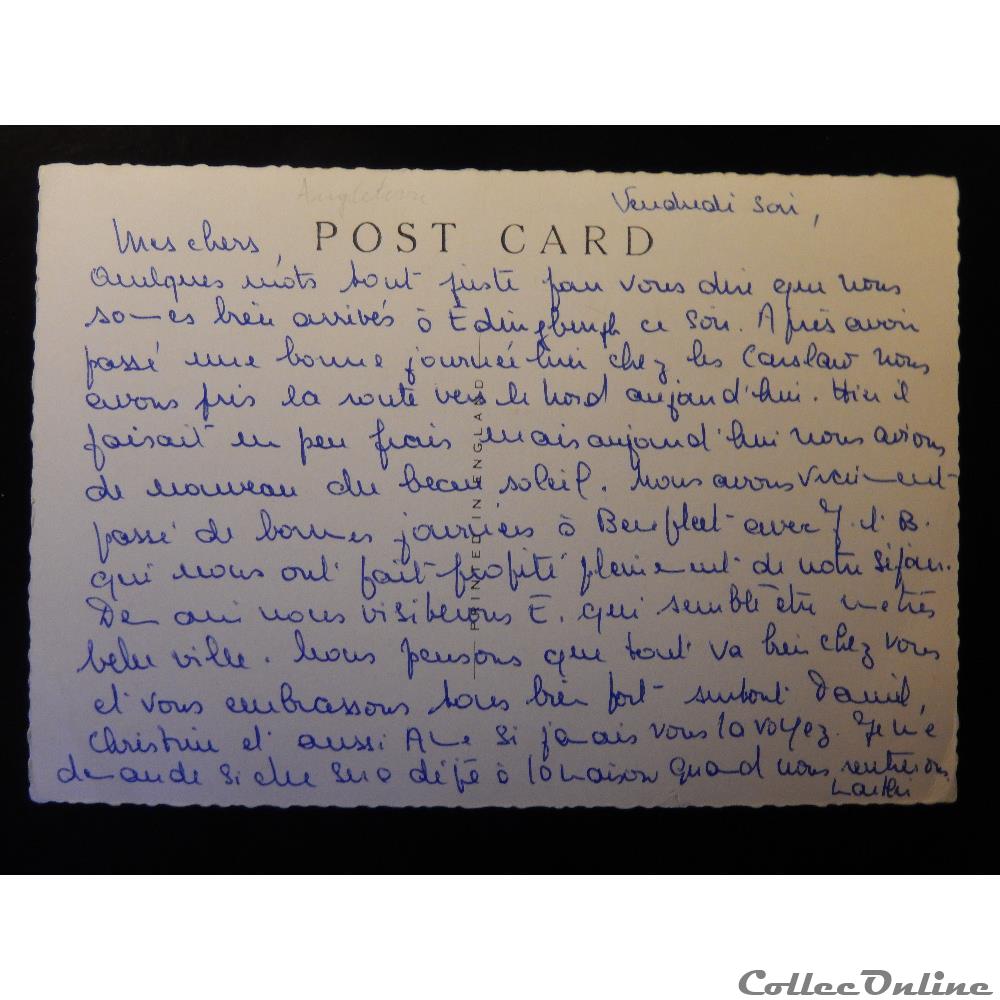 Angleterre
Vendredi soir,
POST CARD
Mes chers,
Quelques mots tout juste pour vous dire que nous
sommes bien arrivés à Edingburgh ce soir. Après avoir
passé une bonne journée hier chez les Carslaw nous
avons pris la route vers le Nord aujourd'hui. Hier il
faisait un peu frais mais aujourd'hui nous avions
de nouveau du beau soleil. Nous avons vraiment
passé de bonnes journées à Benfleet avec J. et B.
qui nous ont fait profité pleinement de notre séjour.
Demain nous visiterons E. qui semble être une très
belle ville. Nous pensons que tout va bien chez vous
et vous embrassons tous bien fort surtout Daniel,
Christine et aussi si jamais vous la voyez. Je me
demande si elle sera déjà à la maison quand nous rentrerons
PRINTED IN ENGLAND
CollecOnline